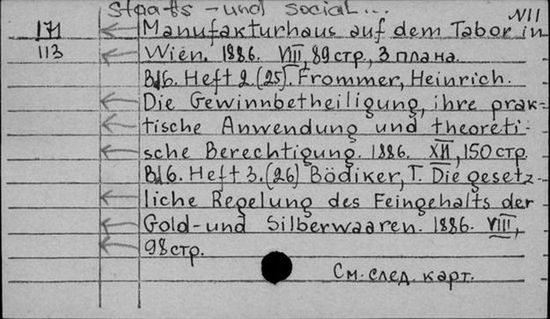 Staats- und social... №11
171 Manufakturhaus auf dem Tabor in
113 Wien. 1886. VIII, 89 стр., 3 плана.
Bd6. Heft 2. (25). Frommer, Heinrich.
Die Gewinnbetheiligung, ihre prak-
tische Anwendung und theoreti-
sche Berechtigung. 1886. XII, 150 стр.
Bd6. Heft 3. (26) Bödiker, T. Die gesetz-
liche Regelung des Feingehalts der
Gold- und Silberwaaren. 1886. VIII,
98 стр.
См. след. карт.